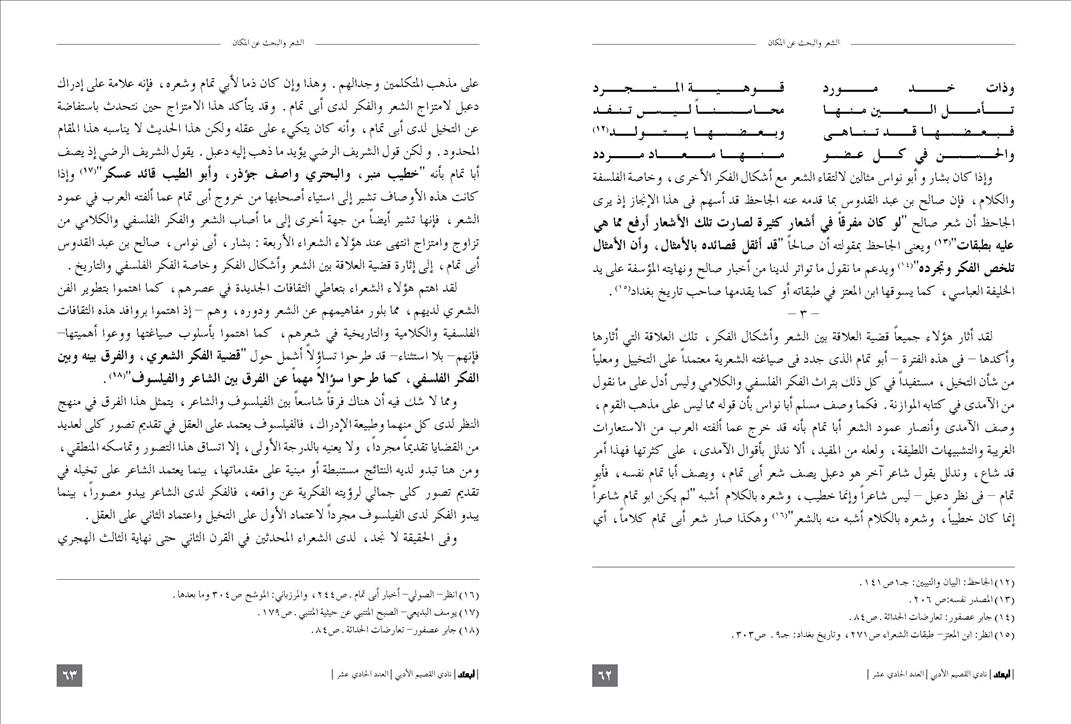 الشعر والبحث عن المكان
وذات خـــد مـــورد قـــوهـيـة المـتـجـرد
تـأمـل الـعـين مـنـهـا محـاسـنـاً لـيـس تـنـفـد
فـبـعـضـهـا قـد تـنـاهـى وبـعـضـهـا يـتـولـد(١٢)
والحـسـن في كـل عـضـو مـنـهـا مـعـاد مـردد
وإذا كان بشار و أبو نواس مثالين لالتقاء الشعر مع أشكال الفكر الأخرى، وخاصة الفلسفة
والكلام، فإن صالح بن عبد القدوس بما قدمه عنه الجاحظ قد أسهم فى هذا الإنجاز إذ يرى
الجاحظ أن شعر صالح "لو كان مفرقاً في أشعار كثيرة لصارت تلك الأشعار أرفع مما هي
عليه بطبقات"(١٣) ويعنى الجاحظ بمقولته أن صالحاً "قد أثقل قصائده بالأمثال، وأن الأمثال
تلخص الفكر وتجرده"(١٤) ويدعم ما نقول ما تواتر لدينا من أخبار صالح ونهايته المؤسفة على يد
الخليفة العباسي، كما يسوقها ابن المعتز في طبقاته أو كما يقدمها صاحب تاريخ بغداد(١٥).
– ٣ –
لقد أثار هؤلاء جميعاً قضية العلاقة بين الشعر وأشكال الفكر، تلك العلاقة التي أثارها
وأكدها – فى هذه الفترة – أبو تمام الذى جدد فى صياغته الشعرية معتمداً على التخييل ومعلياً
من شأن التخيل، مستفيداً في كل ذلك بتراث الفكر الفلسفي والكلامي وليس أدل على ما نقول
من الآمدى في كتابه الموازنة. فكما وصف مسلم أبا نواس بأن قوله مما ليس على مذهب القوم،
وصف الآمدى وأنصار عمود الشعر أبا تمام بأنه قد خرج عما ألفته العرب من الاستعارات
الغريبة والتشبيهات اللطيفة، ولعله من المفيد، ألا ندلل بأقوال الآمدى، على كثرتها فهذا أمر
قد شاع، وندلل بقول شاعر آخر هو دعبل يصف شعر أبى تمام، ويصف أبا تمام نفسه، فأبو
تمام – فى نظر دعبل – ليس شاعراً وإنما خطيب، وشعره بالكلام أشبه "لم يكن ابو تمام شاعراً
إنما كان خطيباً، وشعره بالكلام أشبه منه بالشعر"(١٦) وهكذا صار شعر أبى تمام كلاماً، أي
(١٢) الجاحظ: البيان والتبيين: جـ١ص١٤١.
(١٣) المصدر نفسه:ص ٢٠٦.
(١٤) جابر عصفور: تعارضات الحداثة .ص٨٤.
(١٥) انظر: ابن المعتز– طبقات الشعراء ص٢٧١، وتاريخ بغداد: جـ٩. ص٣٠٣.
٦٢ | أبعاد | نادي القصيم الأدبي | العدد الحادي عشر |
الشعر والبحث عن المكان
على مذهب المتكلمين وجدالهم. وهذا وإن كان ذما لأبي تمام وشعره، فإنه علامة على إدراك
دعبل لامتزاج الشعر والفكر لدى أبى تمام. وقد يتأكد هذا الامتزاج حين نتحدث باستفاضة
عن التخيل لدى أبى تمام، وأنه كان يتكيء على عقله ولكن هذا الحديث لا يناسبه هذا المقام
المحدود. و لكن قول الشريف الرضي يؤيد ما ذهب إليه دعبل. يقول الشريف الرضي إذ يصف
أبا تمام بأنه "خطيب منبر، والبحتري واصف جؤذر، وأبو الطيب قائد عسكر"(١٧) وإذا
كانت هذه الأوصاف تشير إلى استياء أصحابها من خروج أبى تمام عما ألفته العرب في عمود
الشعر، فإنها تشير أيضاً من جهة أخرى إلى ما أصاب الشعر والفكر الفلسفي والكلامي من
تزاوج وامتزاج انتهى عند هؤلاء الشعراء الأربعة : بشار، أبى نواس، صالح بن عبد القدوس
أبى تمام، إلى إثارة قضية العلاقة بين الشعر وأشكال الفكر وخاصة الفكر الفلسفي والتاريخ.
لقد اهتم هؤلاء الشعراء بتعاطي الثقافات الجديدة في عصرهم، كما اهتموا بتطوير الفن
الشعري لديهم، مما بلور مفاهيمهم عن الشعر ودوره، وهم – إذ اهتموا بروافد هذه الثقافات
الفلسفية والكلامية والتاريخية في شعرهم، كما اهتموا بأسلوب صياغتها ووعوا أهميتها–
فإنهم– بلا استثناء– قد طرحوا تساؤلاً أشمل حول "قضية الفكر الشعري، والفرق بينه وبين
الفكر الفلسفي، كما طرحوا سؤالاً مهماً عن الفرق بين الشاعر والفيلسوف"(١٨).
ومما لا شك فيه أن هناك فرقاً شاسعاً بين الفيلسوف والشاعر، يتمثل هذا الفرق في منهج
النظر لدى كل منهما وطبيعة الإدراك، فالفيلسوف يعتمد على العقل في تقديم تصور كلى لعديد
من القضايا تقديماً مجرداً، ولا يعنيه بالدرجة الأولى، إلا اتساق هذا التصور وتماسكه المنطقي،
ومن هنا تبدو لديه النتائج مستنبطة أو مبنية على مقدماتها، بينما يعتمد الشاعر على تخيله في
تقديم تصور كلى جمالي لرؤيته الفكرية عن واقعه، فالفكر لدى الشاعر يبدو مصوراً، بينما
يبدو الفكر لدى الفيلسوف مجرداً لاعتماد الأول على التخيل واعتماد الثاني على العقل.
وفى الحقيقة لا نجد، لدى الشعراء المحدثين في القرن الثاني حتى نهاية الثالث الهجري
(١٦) انظر– الصولي– أخبار أبى تمام .ص٢٤٤، والمرزباني: الموشح ص٣٠٤ وما بعدها.
(١٧) يوسف البديعي– الصبح المتنبي عن حيثية المتنبي .ص١٧٩.
(١٨) جابر عصفور– تعارضات الحداثة .ص٨٤.
٦٣ | أبعاد | نادي القصيم الأدبي | العدد الحادي عشر |